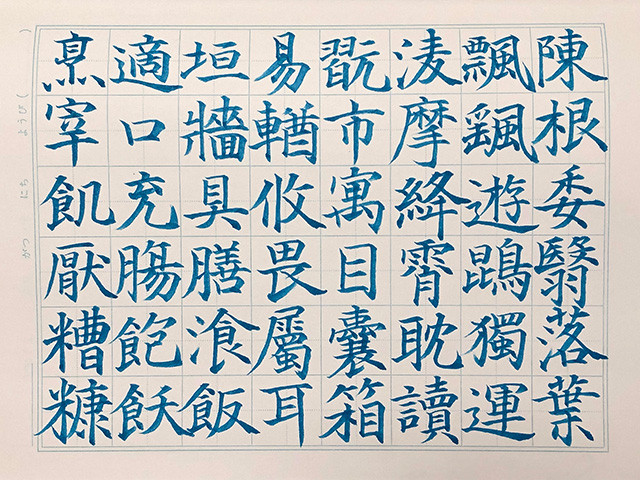 陳根委翳落葉
飄颻遊鵾獨運
淩摩絳霄耽讀
翫市寓目囊箱
易輶攸畏屬耳
垣牆具膳湌飯
適口充腸飽飫
烹宰飢厭糟糠
がつ にち ようび( )